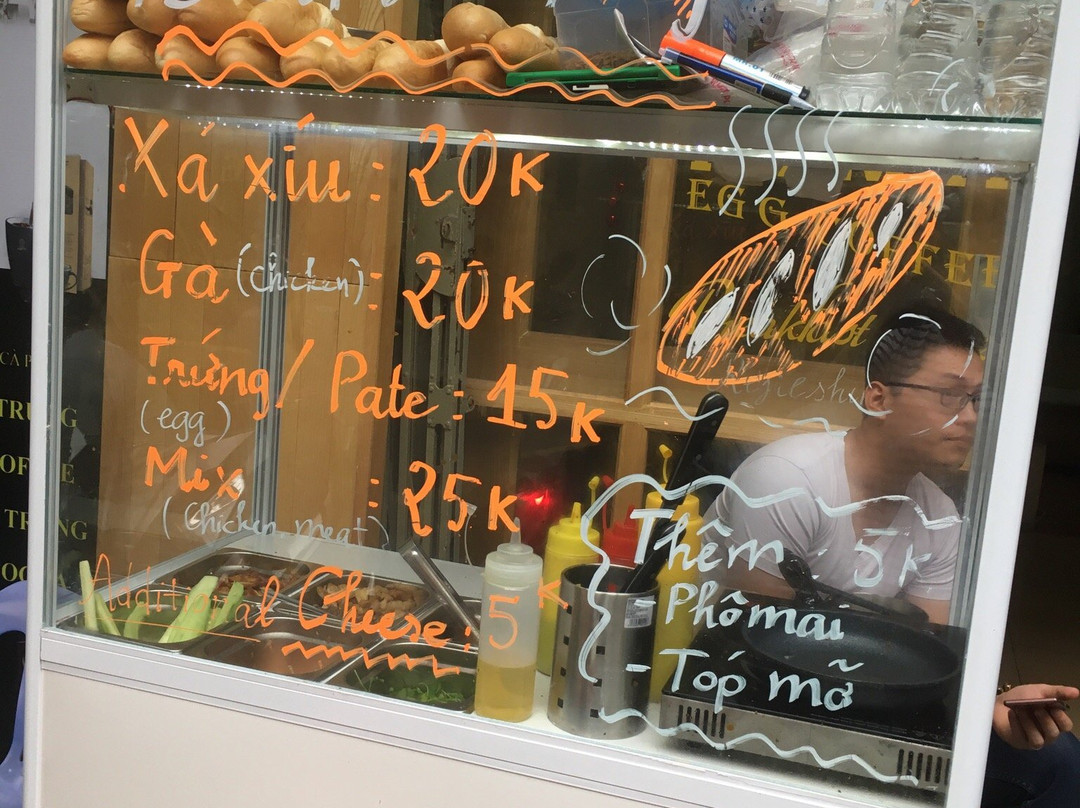 Xá xíu : 20K
Gà (chicken) : 20K
Trứng / Pate : 15K
(egg)
Mix : 25K
(chicken meat)
Additional Cheese : 5K
Thêm : 5K
- Phômai
- Tóp mỡ
EGG
TRUNG